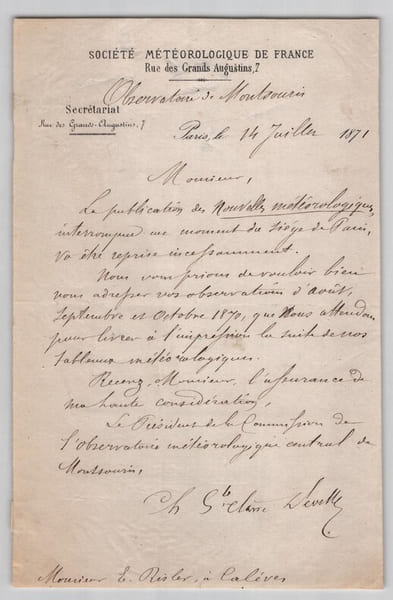 SOCIÉTÉ MÉTÉOROLOGIQUE DE FRANCE
Rue des Grands Augustins, 7
Observatoire de Montsouris
Secrétariat
Rue des Grands-Augustins, 7
Paris, le 14 Juillet 1871
Monsieur,
La publication des Nouvelles météorologiques,
interrompue au moment du siége de Paris,
va être reprise incessamment.
Nous vous prions de vouloir bien
nous adresser vos observations d'Août,
Septembre et Octobre 1870, que nous attendons
pour livrer à l'impression la suite de nos
tableaux météorologiques.
Recevez, Monsieur, l'assurance de
ma haute considération,
Le Président de la Commission de
l'Observatoire météorologique central de
Montsouris,
Ch Ste Claire Deville
Monsieur E. Risler, à Calèves